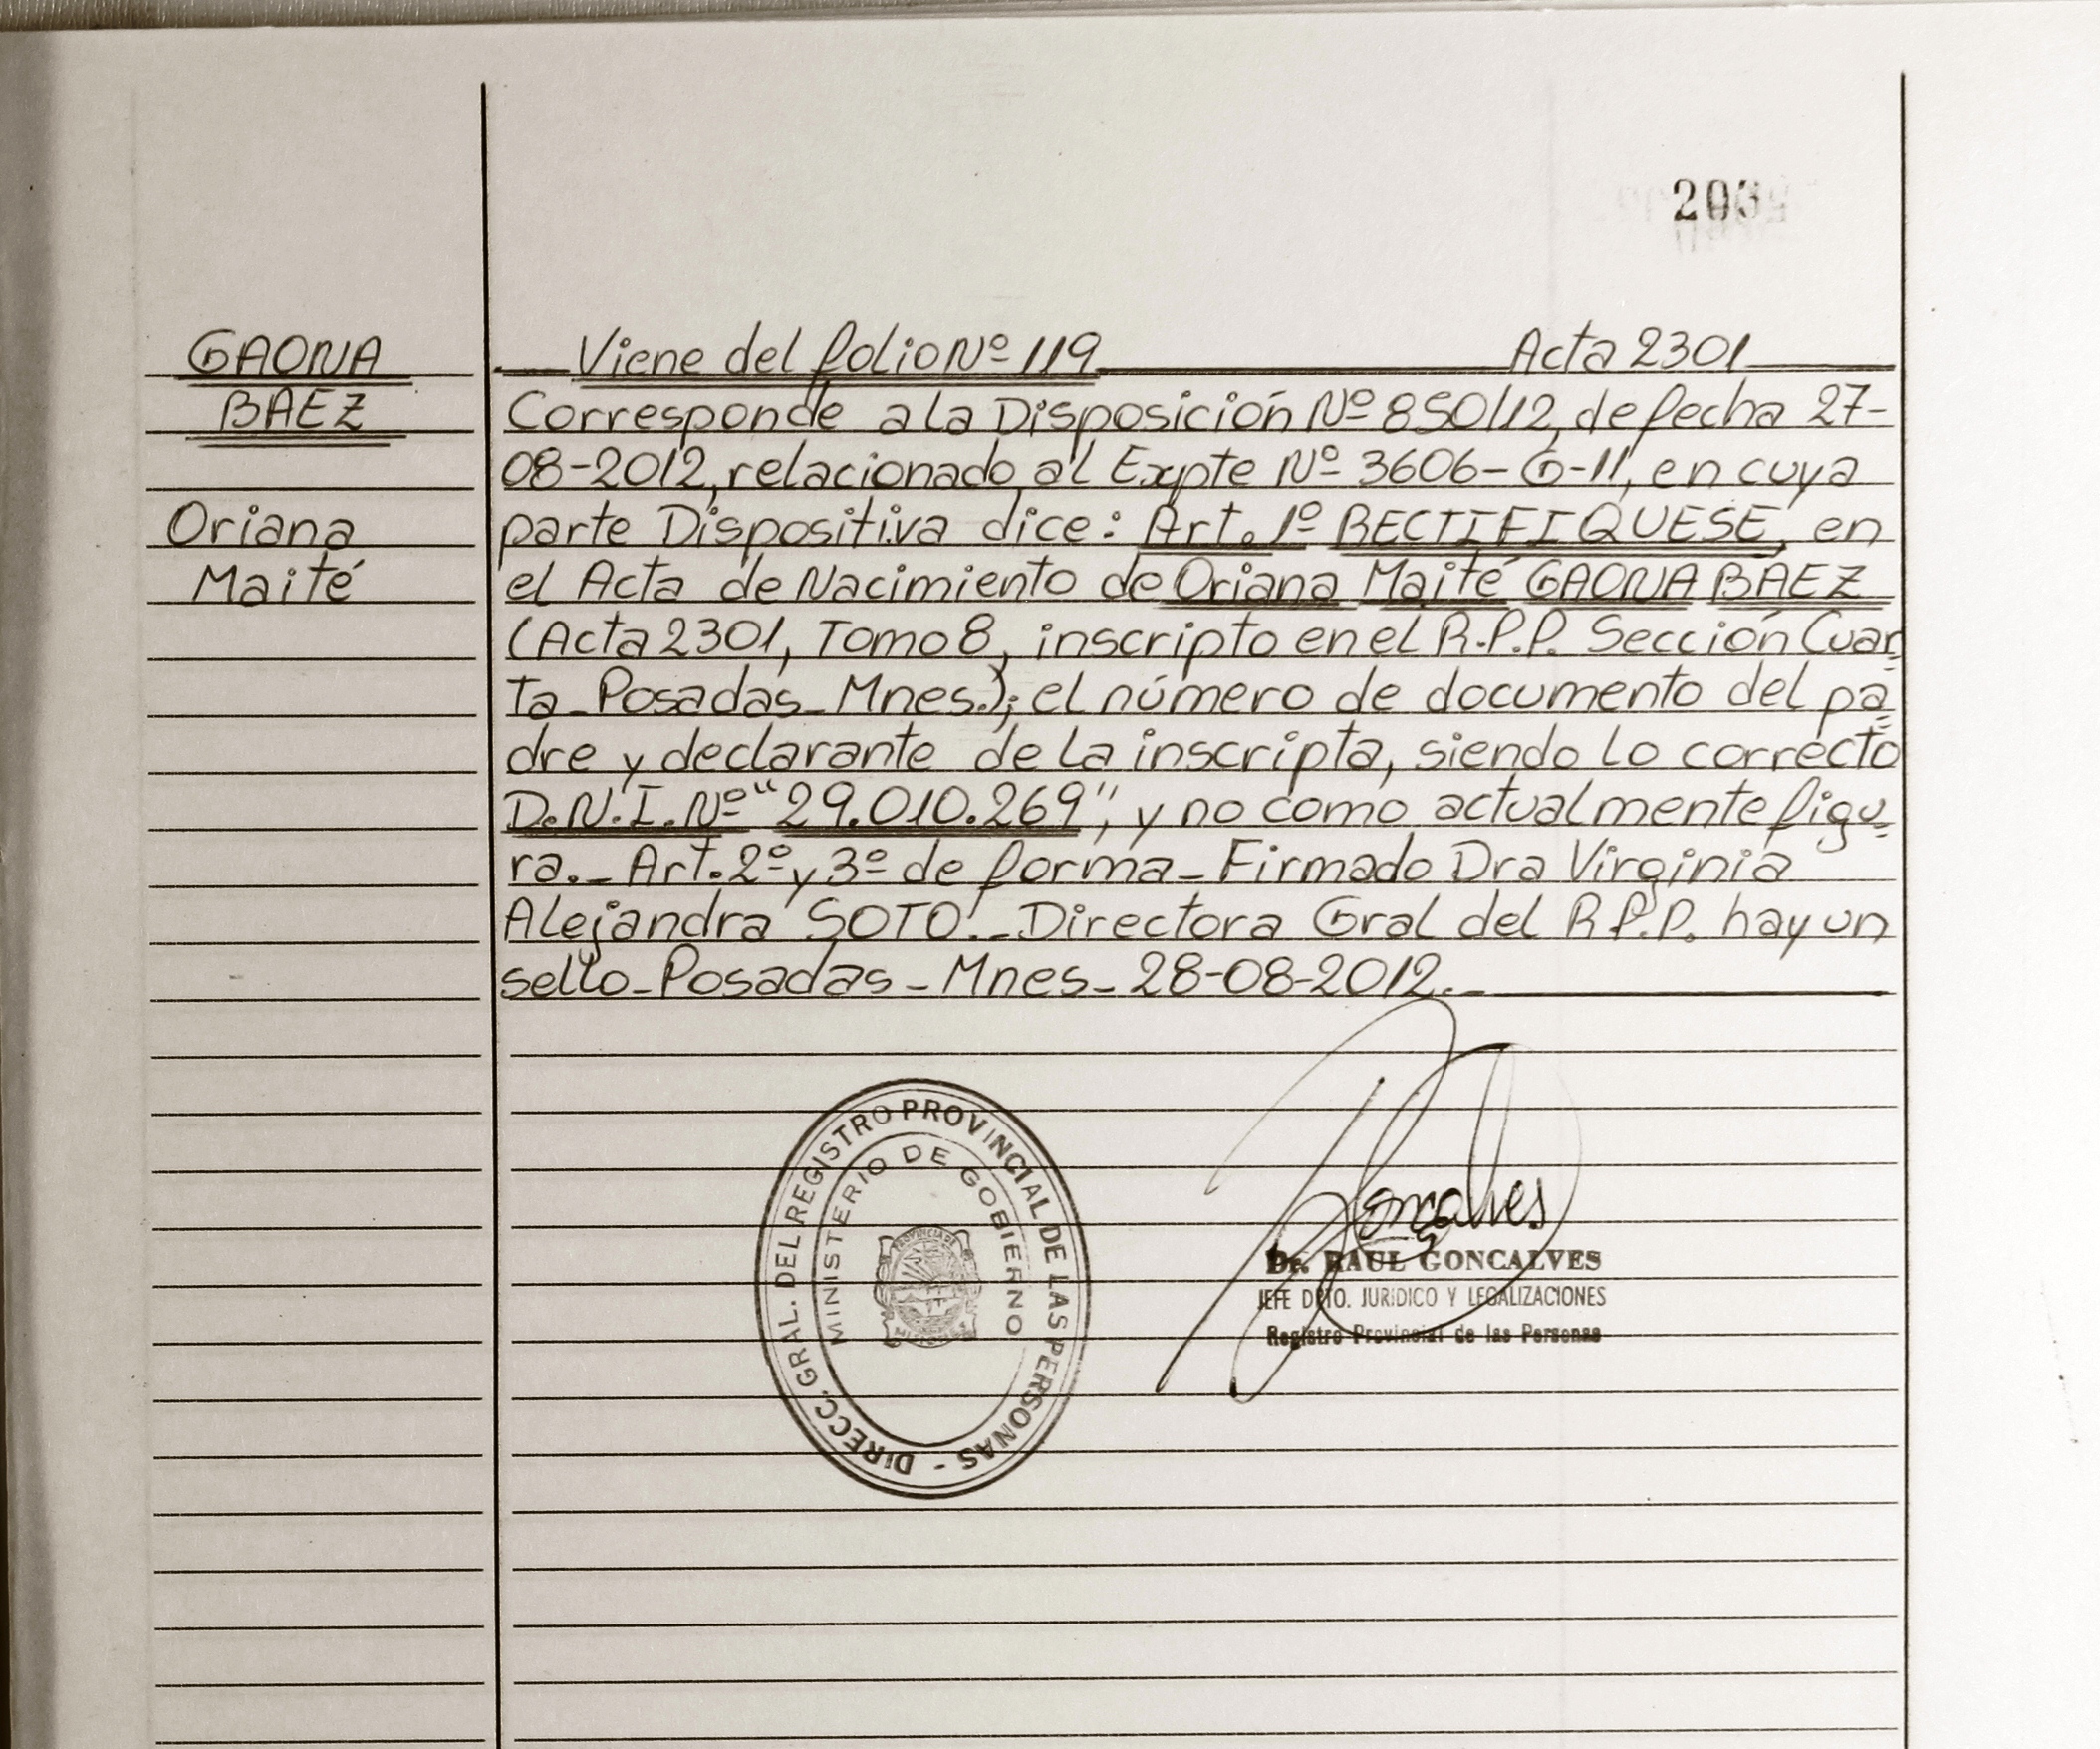 203
GAONA
BAEZ
Oriana
Maité
Viene del folio Nº 119 Acta 2301
Corresponde a la Disposición Nº 850/12, de fecha 27-
08-2012, relacionado al Expte Nº 3606-G-11, en cuya
parte Dispositiva dice: Art. 1º RECTIFIQUESE, en
el Acta de Nacimiento de Oriana Maité GAONA BAEZ
(Acta 2301, Tomo 8, inscripto en el R.P.P. Sección Cuar-
ta_Posadas_Mnes.); el número de documento del pa-
dre y declarante de la inscripta, siendo lo correcto
D.N.I. Nº "29.010.269", y no como actualmente figu-
ra._ Art. 2º y 3º de forma_Firmado Dra Virginia
Alejandra SOTO._Directora Gral del R.P.P. hay un
sello_Posadas_Mnes_28-08-2012._
DIRECC. GRAL. DEL REGISTRO PROVINCIAL DE LAS PERSONAS -
MINISTERIO DE GOBIERNO
PROVINCIA DE
MISIONES
Gonçalves
Dr. RAUL GONCALVES
JEFE DPTO. JURIDICO Y LEGALIZACIONES
Registro Provincial de las Personas